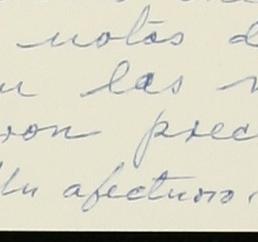 notas d
las
ron prec
Un afectuoso